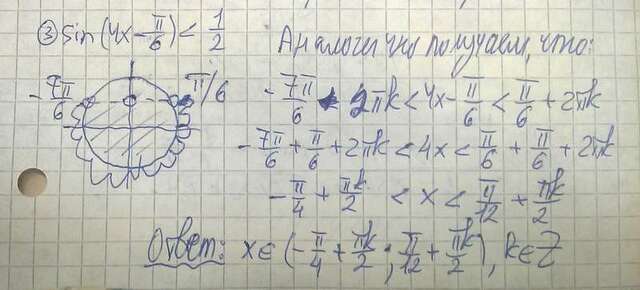 ③ sin(4x - π/6) < 1/2
Аналогично получаем, что:
-7π/6
π/6
-7π/6 + 2πk < 4x - π/6 < π/6 + 2πk
-7π/6 + π/6 + 2πk < 4x < π/6 + π/6 + 2πk
-π/4 + πk/2 < x < π/12 + πk/2
Ответ: x ∈ (-π/4 + πk/2; π/12 + πk/2), k ∈ Z